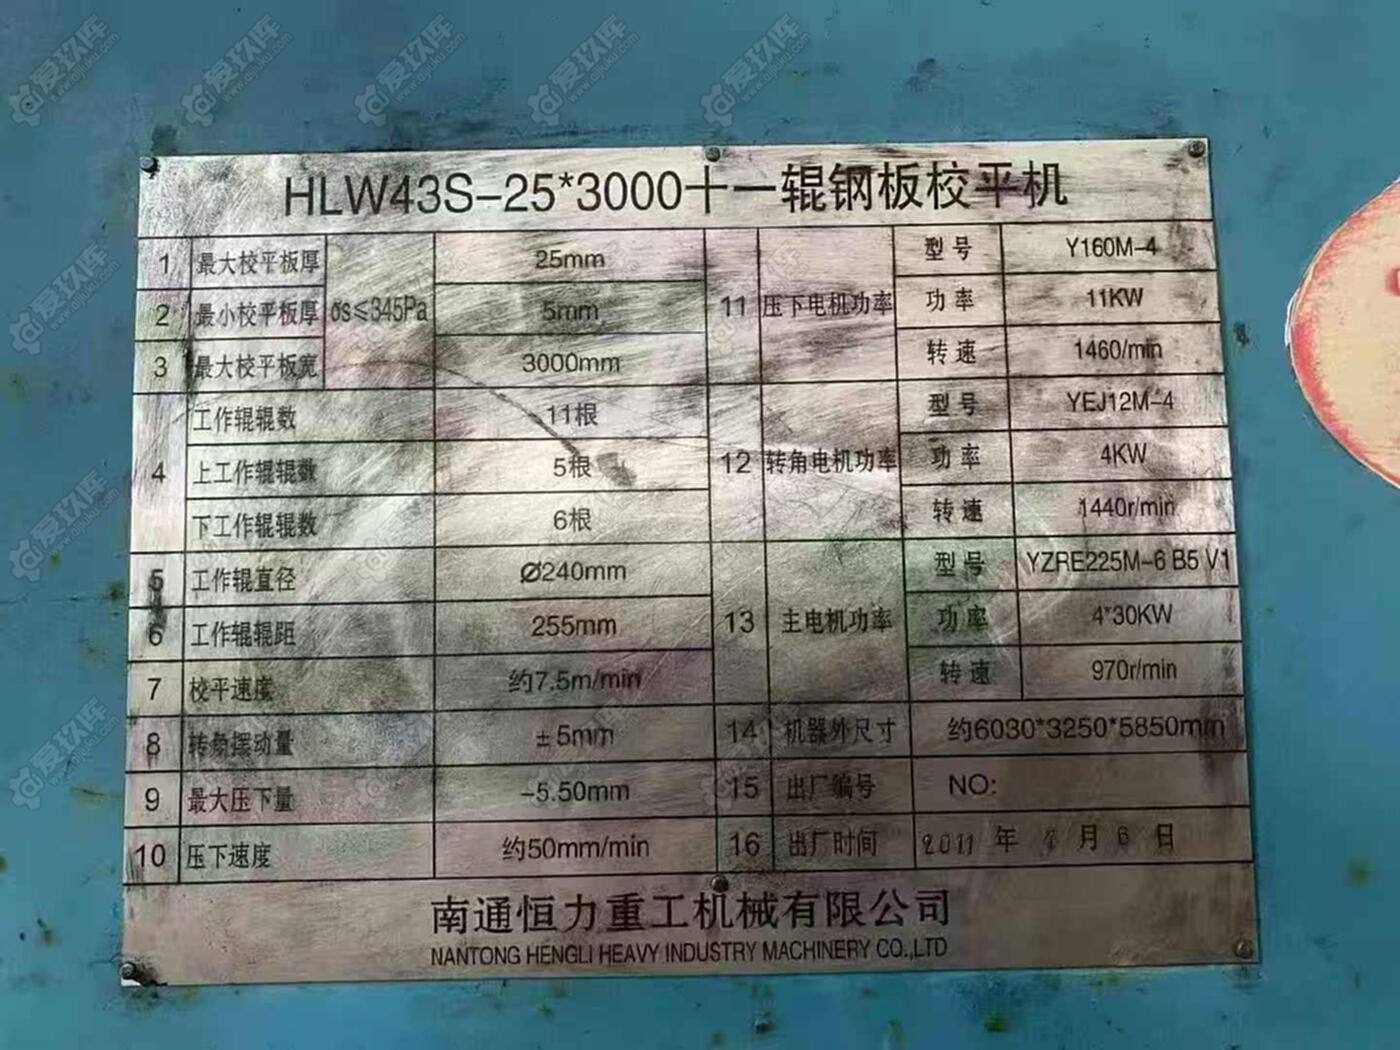 HLW43S-25*3000十一辊钢板校平机
1 最大校平板厚 σs≤345Pa 25mm
2 最小校平板厚 5mm
3 最大校平板宽 3000mm
4 工作辊辊数 11根
上工作辊辊数 5根
下工作辊辊数 6根
5 工作辊直径 Ø240mm
6 工作辊辊距 255mm
7 校平速度 约7.5m/min
8 转角摆动量 ±5mm
9 最大压下量 -5.50mm
10 压下速度 约50mm/min
11 压下电机功率 型号 Y160M-4
功率 11KW
转速 1460/min
12 转角电机功率 型号 YEJ12M-4
功率 4KW
转速 1440r/min
13 主电机功率 型号 YZRE225M-6 B5 V1
功率 4*30KW
转速 970r/min
14 机器外尺寸 约6030*3250*5850mm
15 出厂编号 NO:
16 出厂时间 2011 年 月 6 日
南通恒力重工机械有限公司
NANTONG HENGLI HEAVY INDUSTRY MACHINERY CO.,LTD
爱玖库
www.aijiuku.com